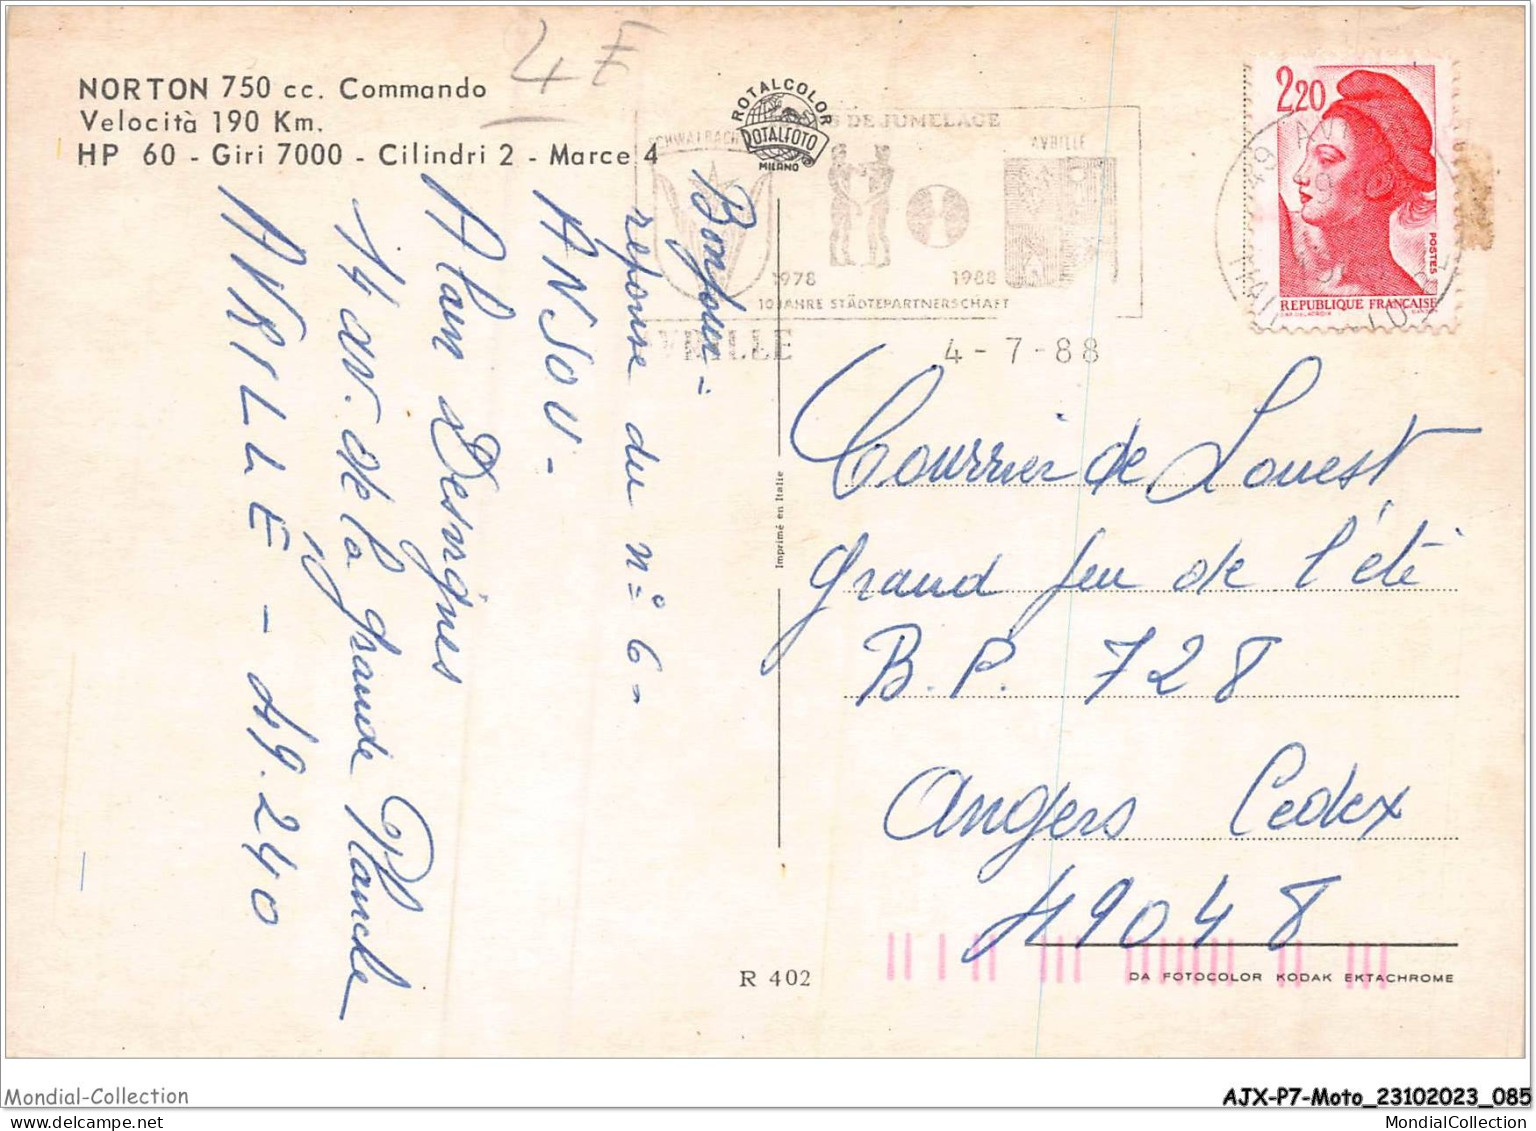 NORTON 750 cc. Commando
Velocità 190 Km.
HP 60 - Giri 7000 - Cilindri 2 - Marce 4
4 E
ROTALCOLOR
ROTALFOTO
MILANO
SCHWALBACH
DE JUMELAGE
AVRILLE
1978 1988
10 JAHRE STÄDTEPARTNERSCHAFT
AVRILLE
4-7-88
2,20
POSTES
REPUBLIQUE FRANÇAISE
Bonjour =
reponse du n° 6 -
ANSOU -
Alain Desvignes
14 av. de la grande Planche
AVRILLÉ - 49.240
Imprimé en Italie
Courrier de Louest
grand jeu de l'été
B.P. 728
Angers Cedex
49048
R 402
DA FOTOCOLOR KODAK EKTACHROME
Mondial-Collection
delcampe.net
AJX-P7-Moto_23102023_085
MondialCollection